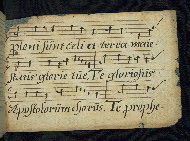 pleni sunt celi et terra maie-
statis glorie tue, Te gloriosus
Apostolorum chorus. Te prophe-